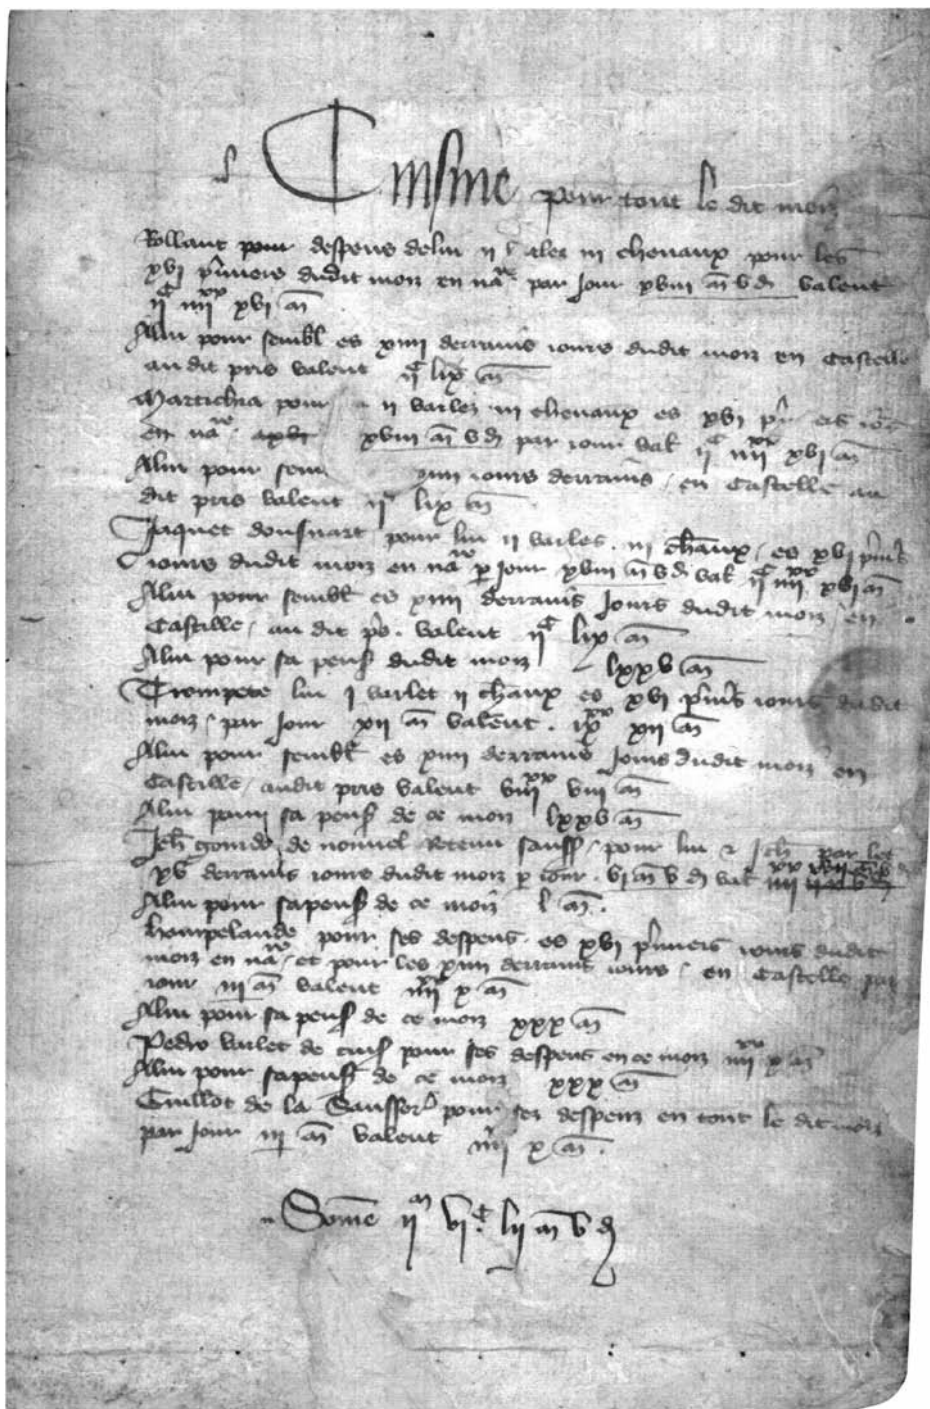 Cuisine pour tout le dit mois
Rollant pour despens de lui ii chevaux pour les
xvi p'miers dudit mois en na^re par jour xviii m̄ v d valent
ii^c iiii^xx xvi m̄
A lui pour sembl es xiiii derrains iours dudit mois en Castelle
au dit pris valent ii^c lix m̄
Martichia pour ii varlez iii chevaux es xvi
en na^re xviii m̄ v d par iour val' ii^c iiii^xx xvi m̄
A lui pour sem iiii iours derrains en Castelle au
dit pris valent ii^c lix m̄
Jaquet pour lui ii varles iii ch'aux es xvi p'miers
iours dudit mois en na^re p jour xviii m̄ v d val' ii^c iiii^xx xvi m̄
A lui pour sembl' es xiiii derrains jours dudit mois en
Castille au dit p's valent ii^c lix m̄
A lui pour sa pens' dudit mois lxxv m̄
Trompete lui i varlet ii ch'aux es xvi p'miers iours dudit
mois par jour xii m̄ valent ix^xx xii m̄
A lui pour sembl' es xiiii derrains jours dudit mois en
Castille audit pris valent viii^xx viii m̄
A lui pour sa pens' de ce mois lxxv m̄
Jeh' de nouvel retenu pour lui par les
xv derrains iours dudit mois p jour vi m̄ v d val' iiii^xx
A lui pour sa pens' de ce mois l m̄
Houpelande pour ses despens es xvi p'miers iours dudit
mois en na^re et pour les xiiii derrains iours en Castelle par
iour iii m̄ valent iiii^xx x m̄
A lui pour sa pens' de ce mois xxx m̄
Pedro varlet de cuis' pour ses despens en ce mois iiii^xx x m̄
A lui pour sa pens' de ce mois xxx m̄
Guillot de la Sausser' pour ses despens en tout le dit mois
par jour iii m̄ valent iiii^xx x m̄
Som̄e ii^m vi^c lii m̄ v d